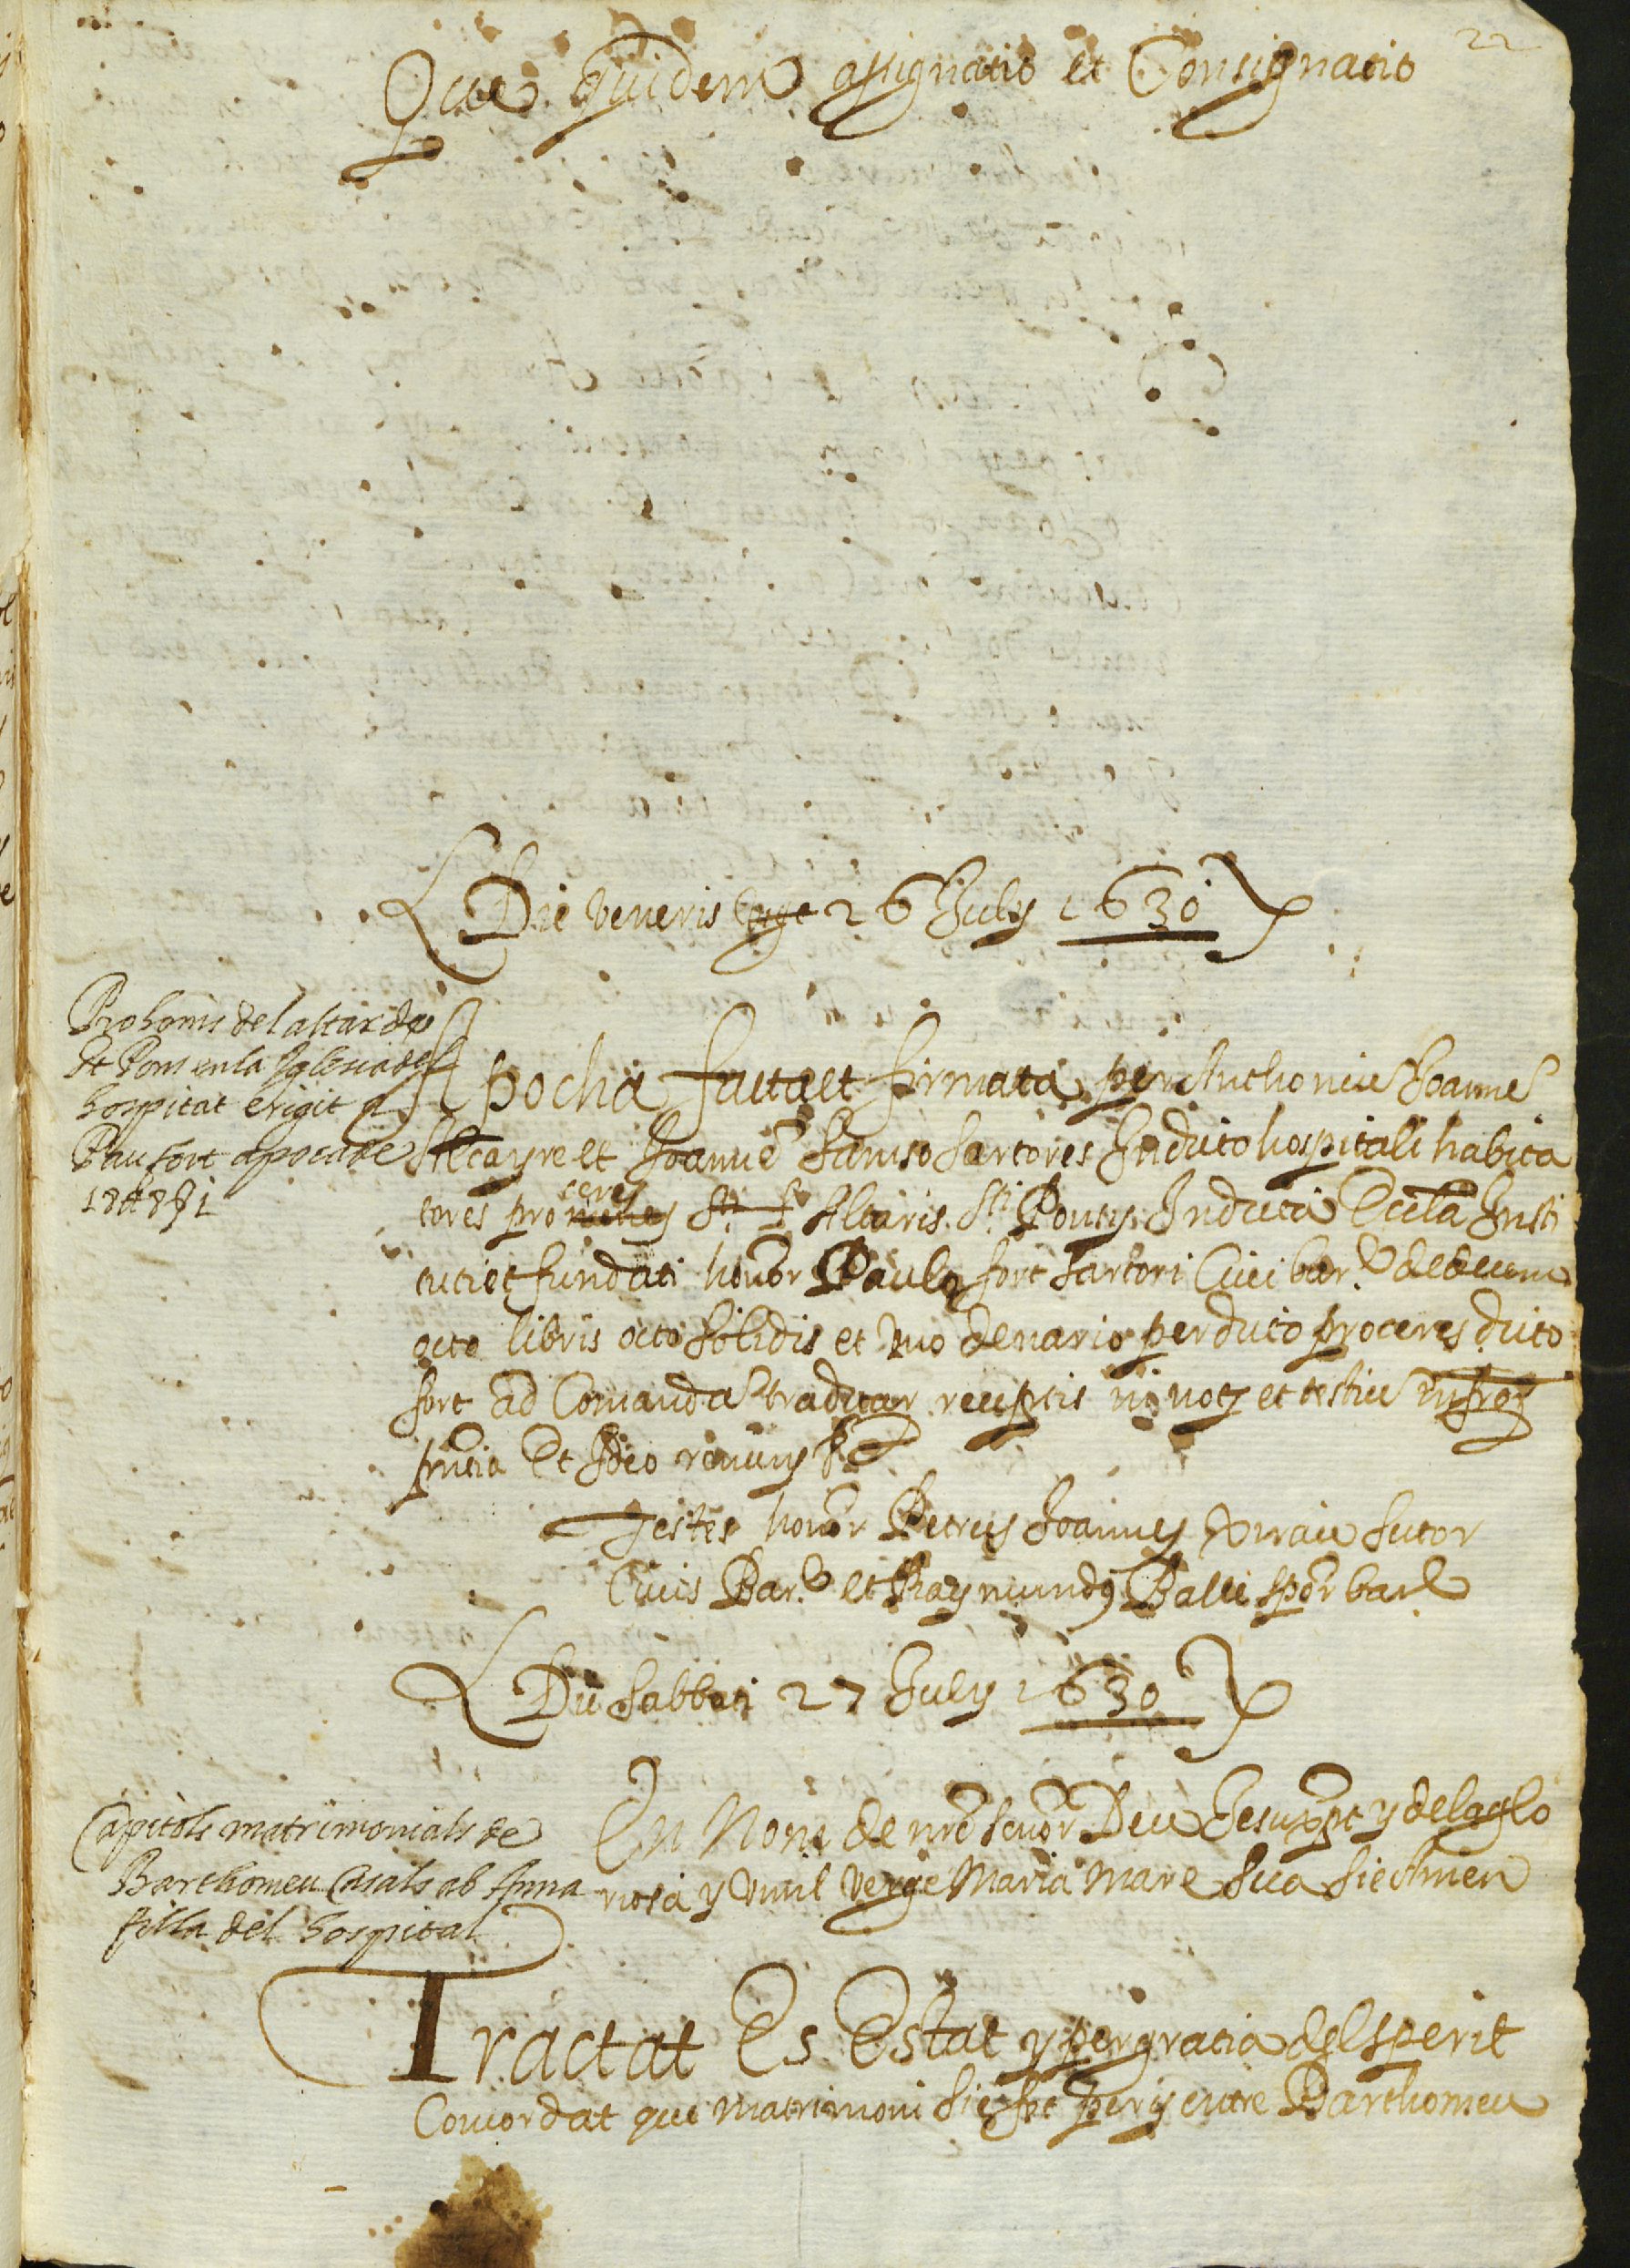 22
Que quidem assignatio et Consignatio
Die Veneris 26 July 1630
Prohoms del altar de
St Pons en la Iglesia del
hospital erigit a
Pau fort apoca de
18 ll 8 s 1
Apocha facta et firmata per Anthoniu Joanne
Alcayre et Joanne Sunso Sartores In dicto hospitali habita
tores proceres Altaris Sti Ponty In dicta Eccla Insti
tuti et fundati honor Paulo fort Sartori Civi bar. de decem
octo libris octo solidis et uno denario per dicto proceres dicto
fort ad Comanda traditar receptis in not et testiu infrõ
pñtia Et Ideo renuns &
Testes honor Petrus Joannes Xirau Sutor
Civis Bar. et Raymundus Balli spor bar
Die Sabbati 27 July 1630
Capitols matrimonials de
Barthomeu Casals ab Anna
filla del hospital
En Nom de nre senor Deu Jesuxpt y de la glo
riosa y Umil Verge Maria Mare Sua Sie Amen
Tractat Es Estat y per gratia del sperit
Concordat que matrimoni sie fet per y entre Barthomeu